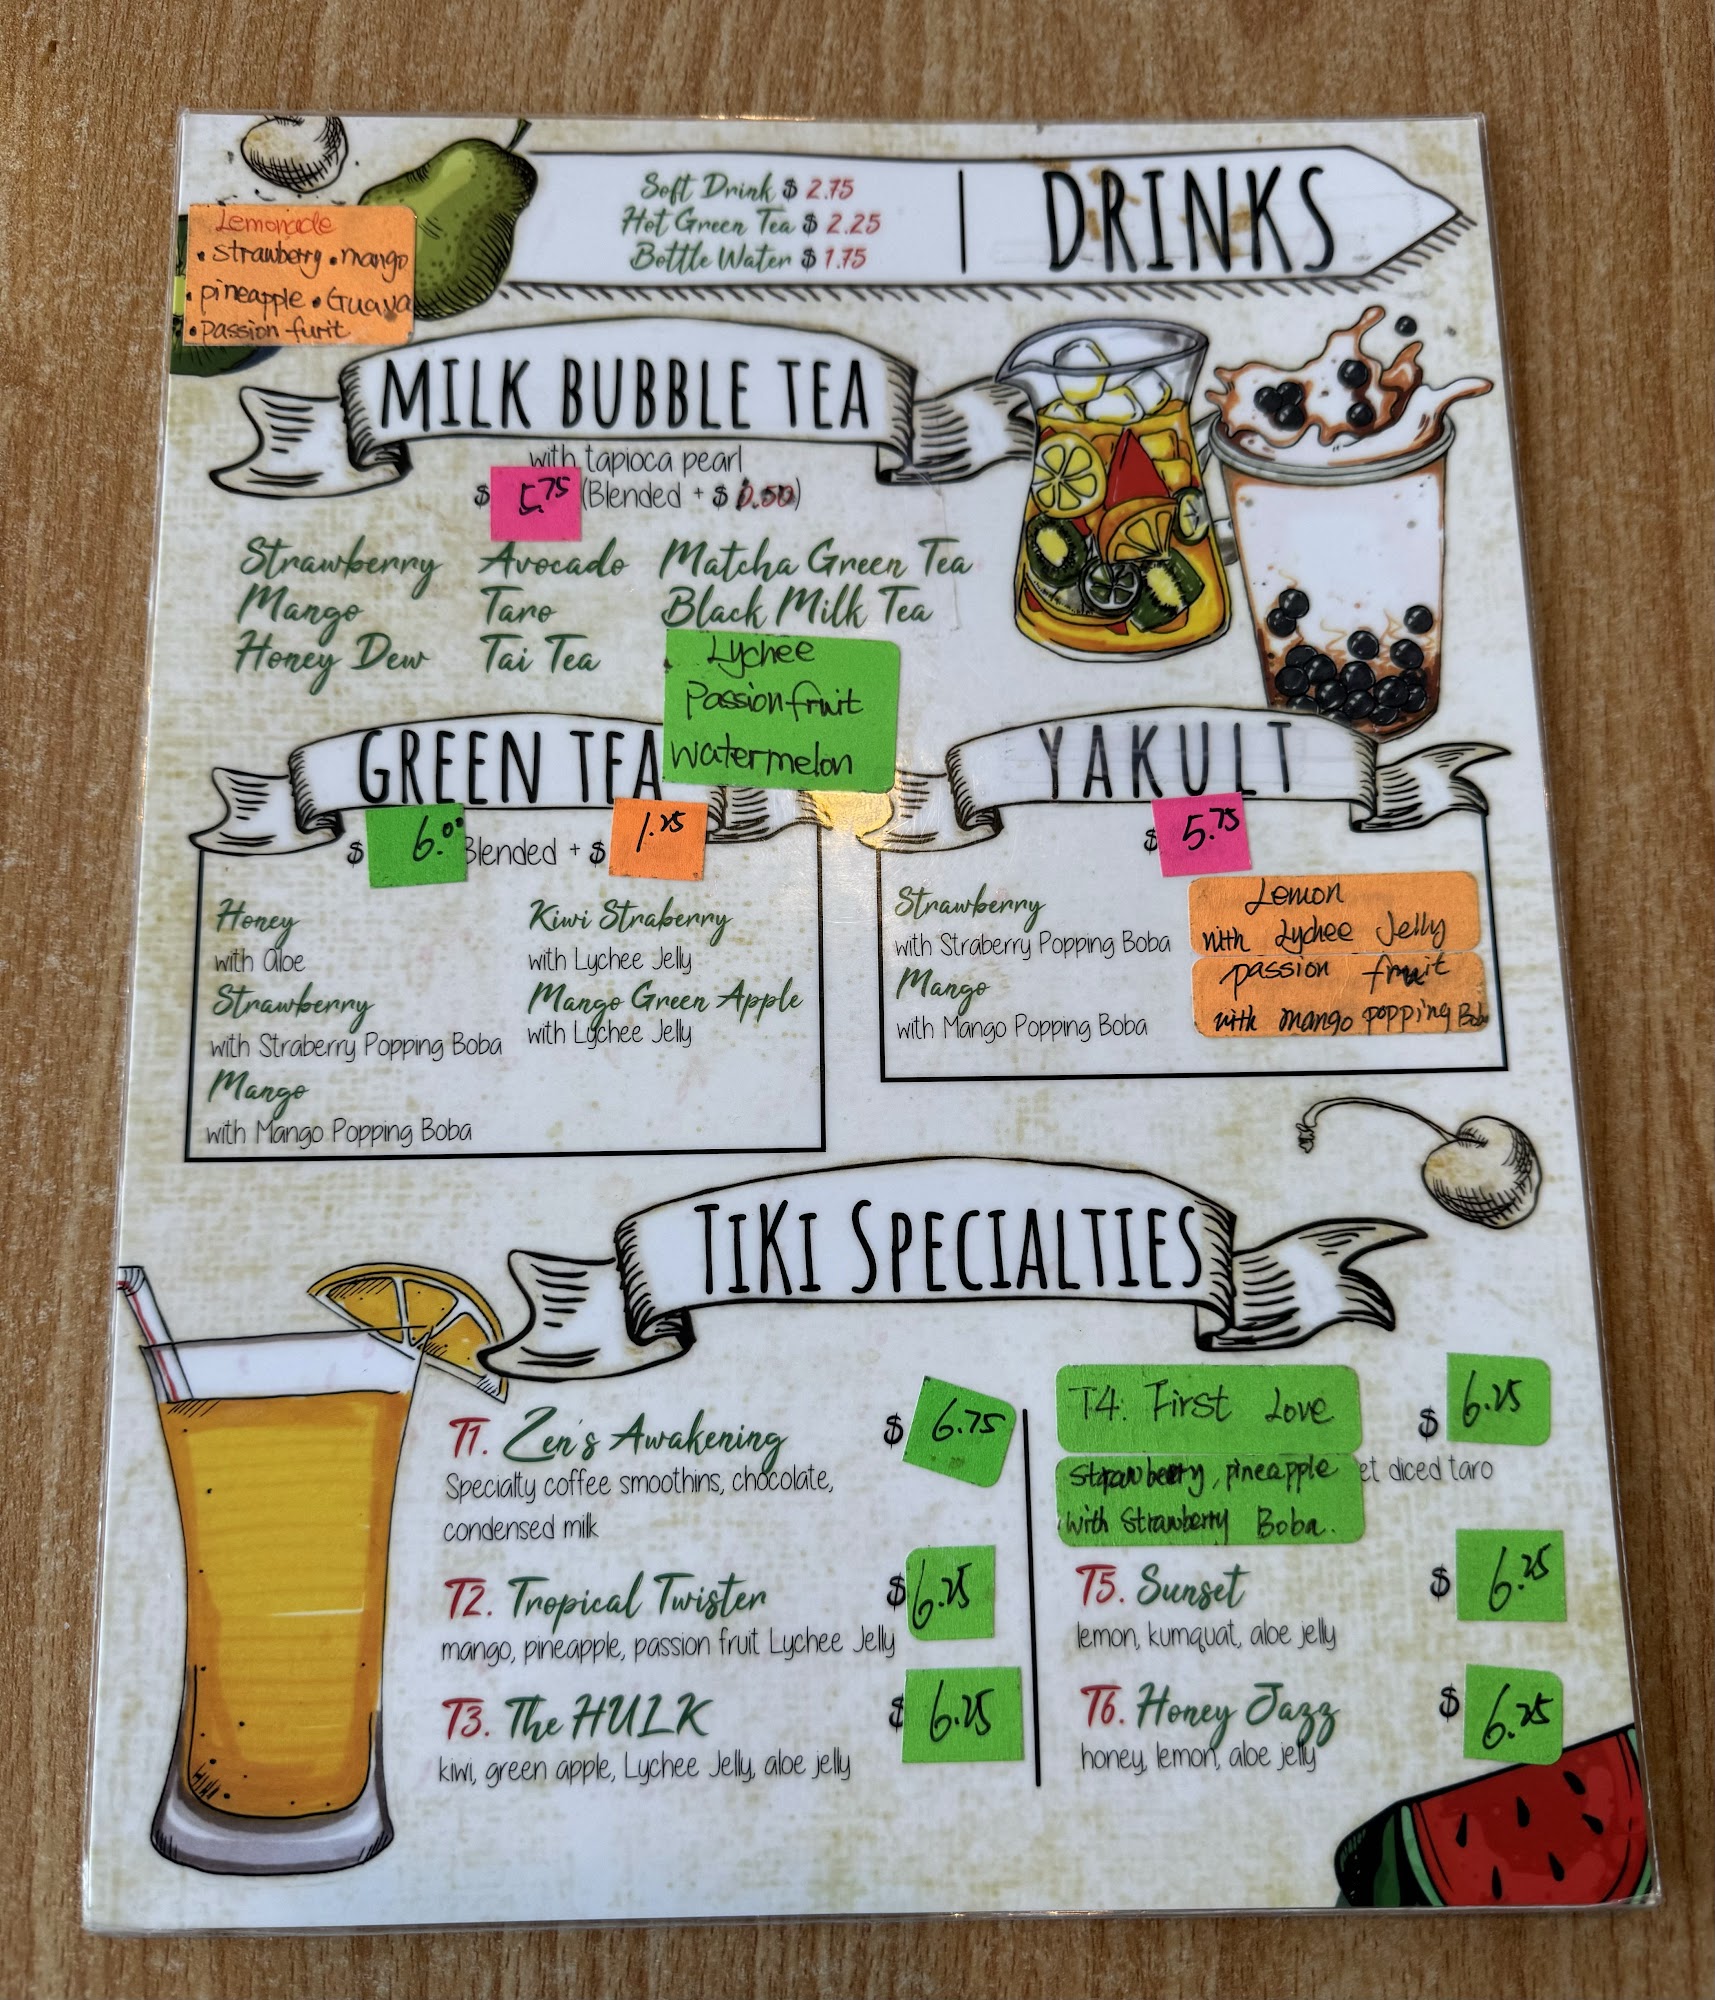 Soft Drink $ 2.75
Hot Green Tea $ 2.25
Bottle Water $ 1.75
DRINKS
Lemonade
• strawberry • mango
• pineapple • Guava
• Passion furit
MILK BUBBLE TEA
with tapioca pearl
$ 5.75 (Blended + $ 0.50)
Strawberry
Mango
Honey Dew
Avocado
Taro
Tai Tea
Matcha Green Tea
Black Milk Tea
Lychee
Passionfruit
watermelon
GREEN TEA
$ 6.00 Blended + $ 1.25
Honey
with Aloe
Strawberry
with Straberry Popping Boba
Mango
with Mango Popping Boba
Kiwi Straberry
with Lychee Jelly
Mango Green Apple
with Lychee Jelly
YAKULT
$ 5.75
Strawberry
with Straberry Popping Boba
Mango
with Mango Popping Boba
Lemon
with Lychee Jelly
passion fruit
with mango popping Boba
TiKi SPECIALTIES
T1. Zen's Awakening $ 6.75
Specialty coffee smoothins, chocolate,
condensed milk
T2. Tropical Twister $ 6.25
mango, pineapple, passion fruit Lychee Jelly
T3. The HULK $ 6.25
kiwi, green apple, Lychee Jelly, aloe jelly
T4. First Love $ 6.25
strawberry, pineapple et diced taro
with Strawberry Boba.
T5. Sunset $ 6.25
lemon, kumquat, aloe jelly
T6. Honey Jazz $ 6.25
honey, lemon, aloe jelly